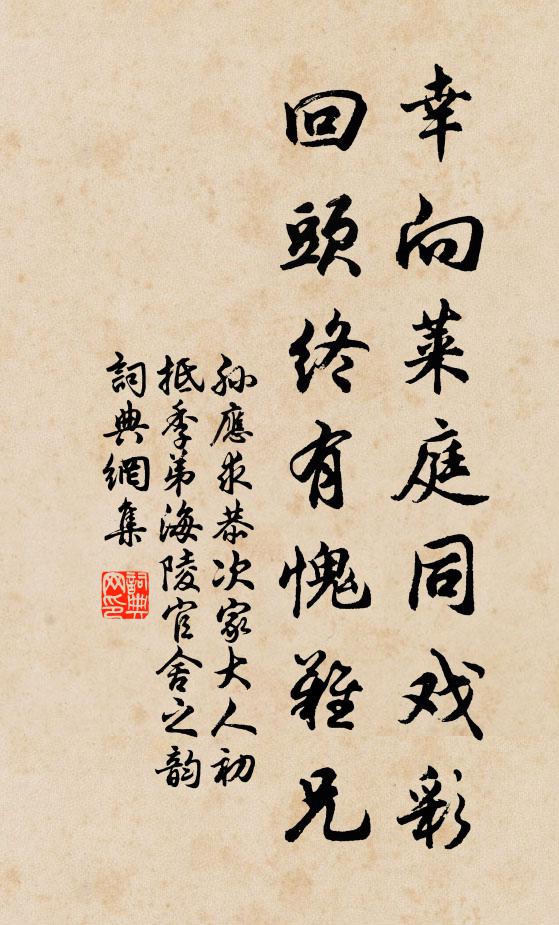 幸向萊庭同戏彩
回頭終有愧難兄
孫應求恭次家大人初
抵季弟海陵官舍之韵
詞典網集
詞典网印